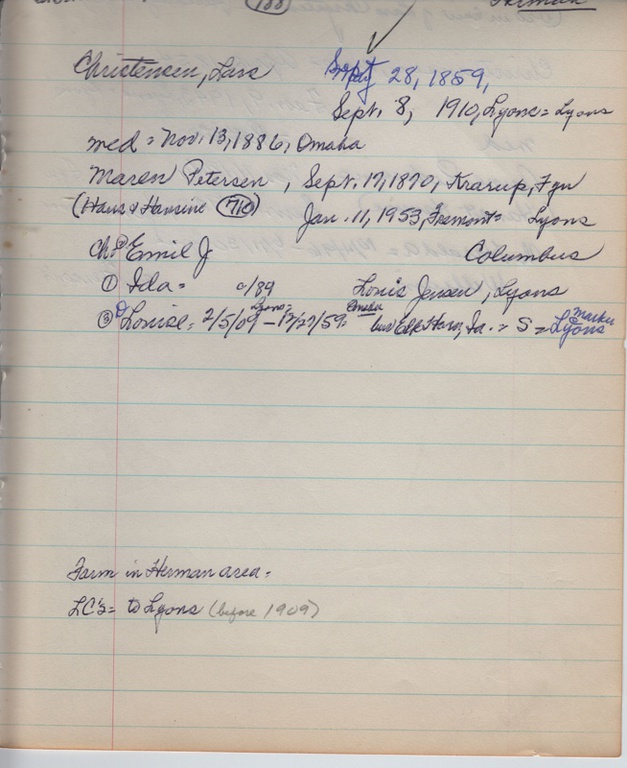 188 Herman
Christensen, Lars Sept 28, 1859,
Sept. 8, 1910, Lyons = Lyons
med = Nov. 13, 1886, Omaha
Maren Petersen, Sept. 17, 1870, Krarup, Fyn
(Hans & Hansine 710) Jan. 11, 1953, Fremont = Lyons
Ch. Emil J Columbus
① Ida = c/89 Louis Jensen, Lyons
③ Louise = 2/5/09 Lyons - 12/27/59 = Omaha bur Elk Horn, Ia. = S = Lyons marker
Farm in Herman area =
LC's = to Lyons (before 1909)